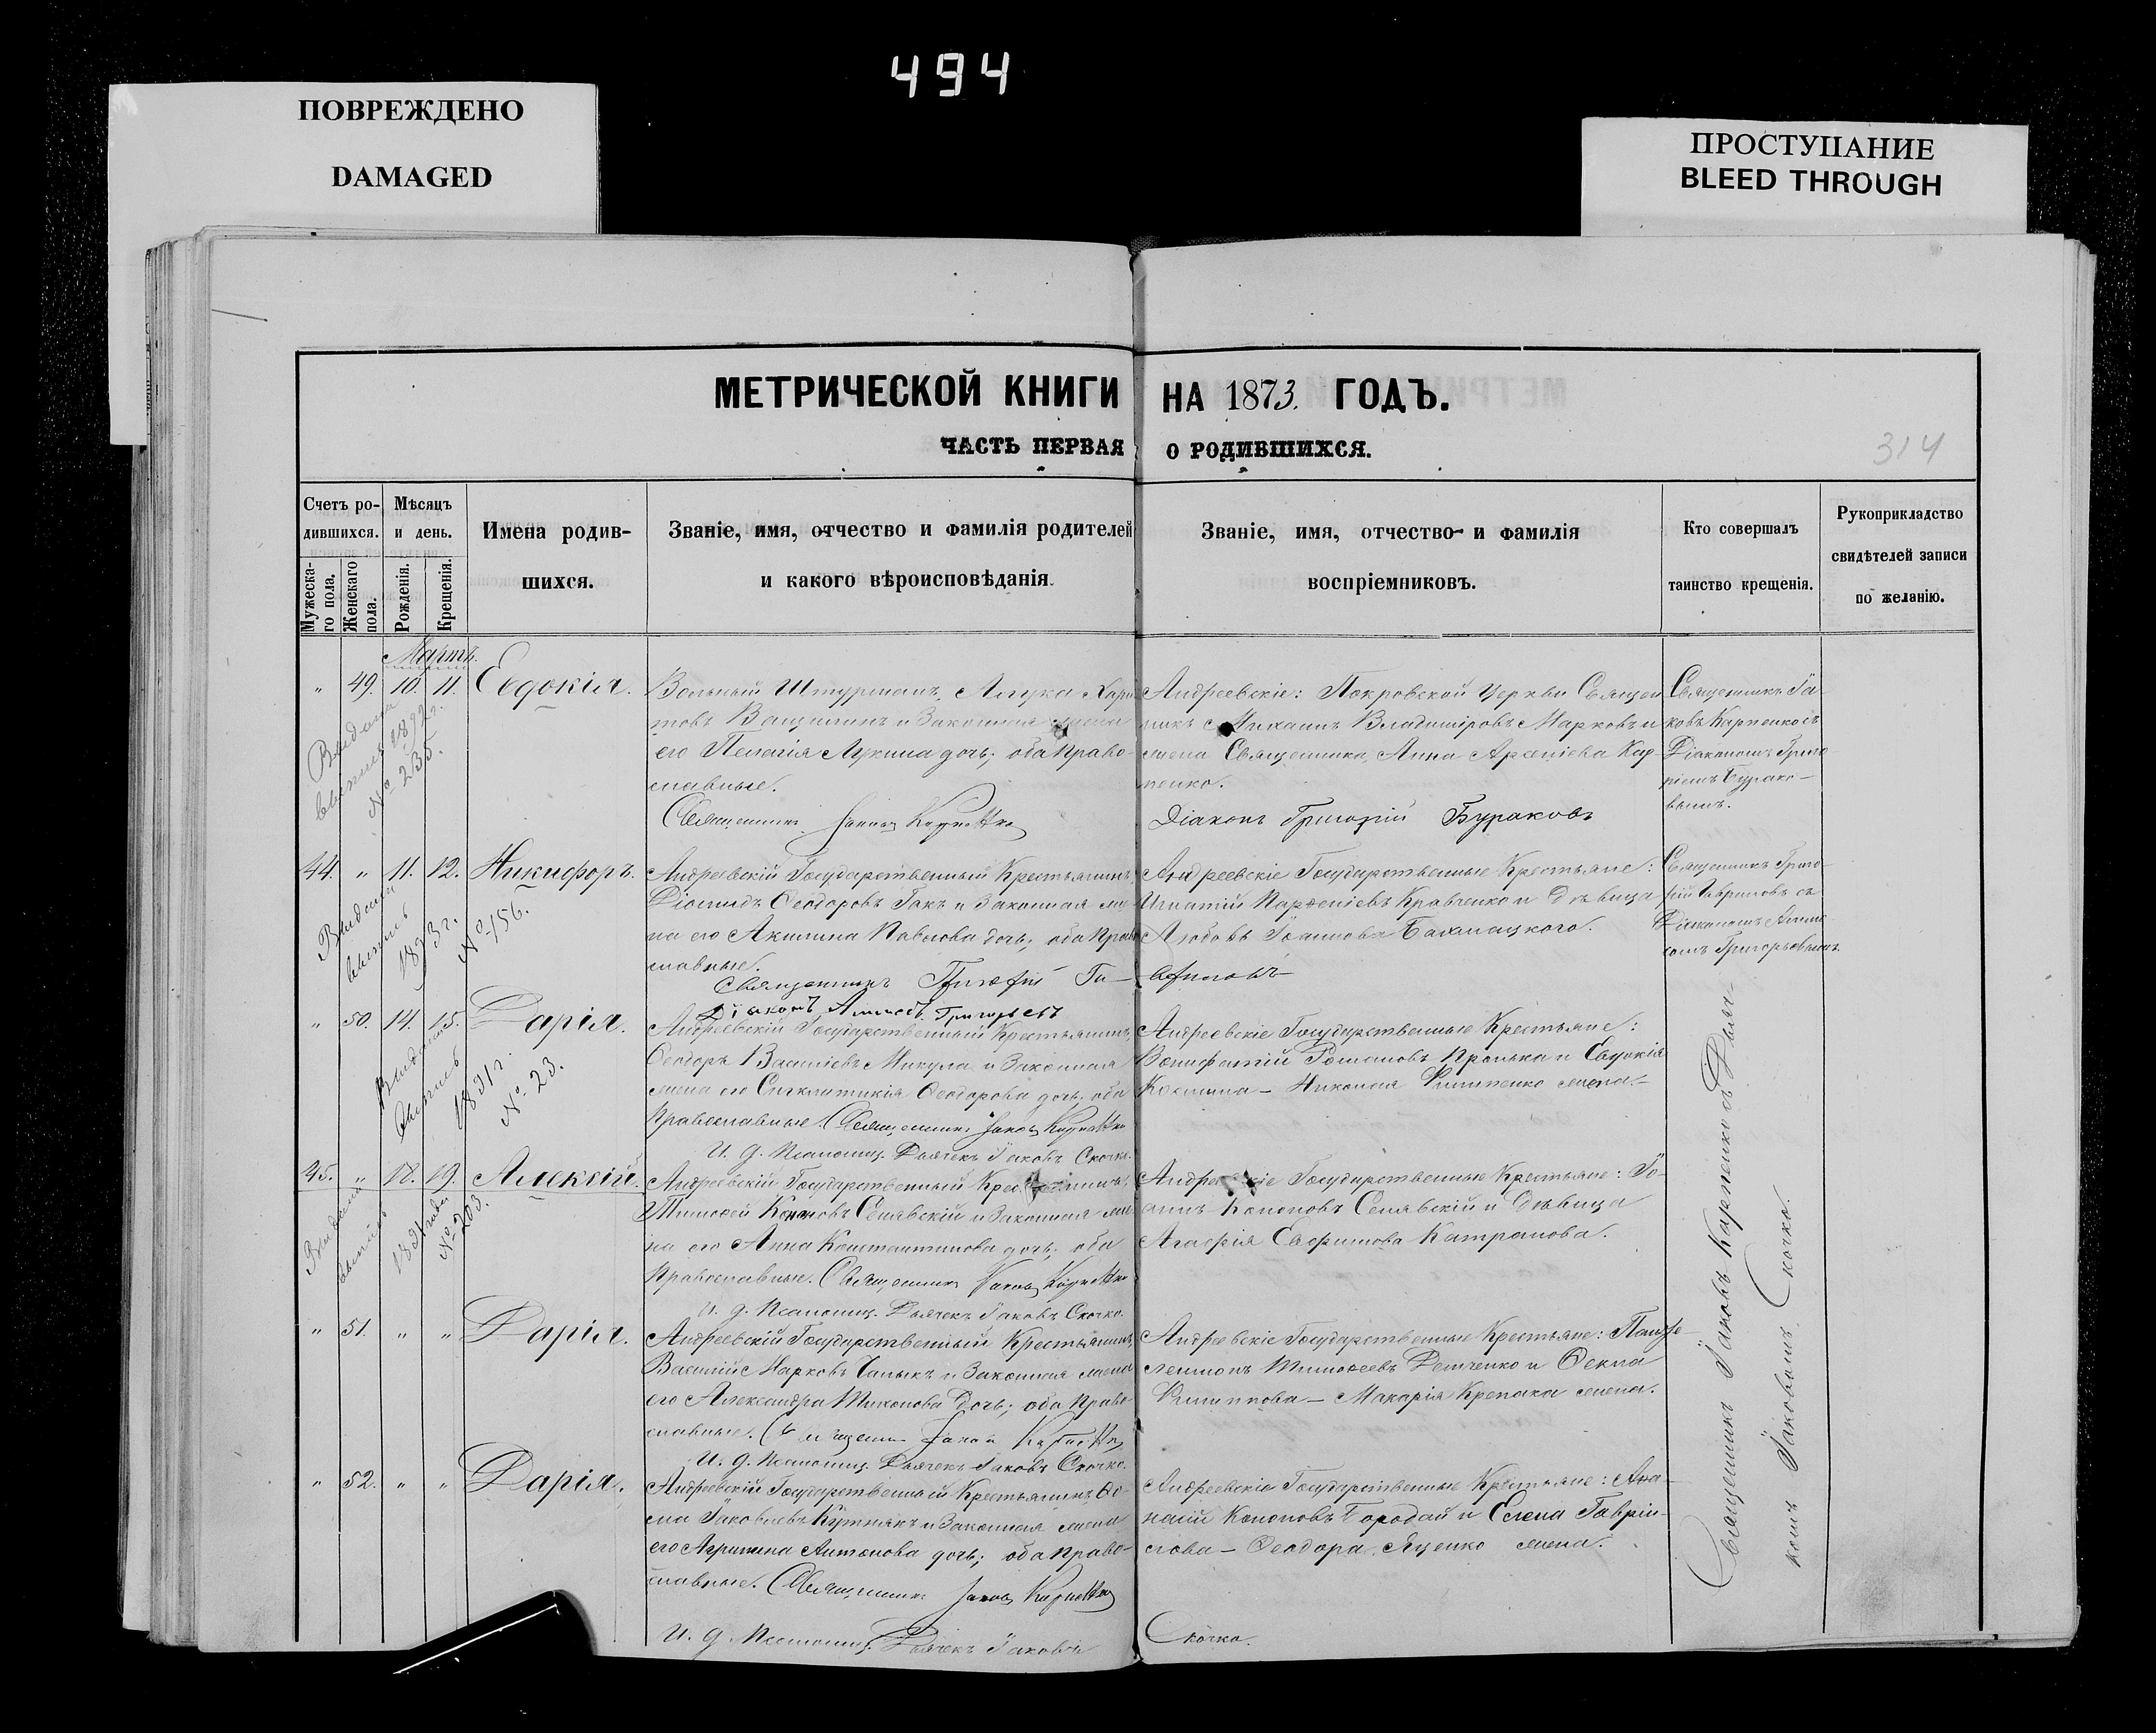 494
ПОВРЕЖДЕНО
DAMAGED
ПРОСТУПАНИЕ
BLEED THROUGH
МЕТРИЧЕСКОЙ КНИГИ НА 1873. ГОДЪ.
ЧАСТЬ ПЕРВАЯ О РОДИВШИХСЯ.
314
Счетъ ро-
дившихся.
Мужеска-
го пола.
Женскаго
пола.
Мѣсяцъ
и день.
Рожденія.
Крещенія.
Имена родив-
шихся.
Званіе, имя, отчество и фамилія родителей
и какого вѣроисповѣданія.
Званіе, имя, отчество и фамилія
воспріемниковъ.
Кто совершалъ
таинство крещенія.
Рукоприкладство
свидѣтелей записи
по желанію.
Мартъ.
" 49. 10. 11. Евдокія.
Вольный Штурманъ, Лука Хари-
товъ и Законная жена
его Пелагія Лукина дочь; оба Право-
славные.
Священникъ Іаковъ Карпенко
Андреевскіе: Покровской Церкви Священ-
никъ Михаилъ Владиміровъ Марковъ и
жена Священника, Анна Арсеніева Кар-
пенко.
Діаконъ Григорій Бураковъ
Священникъ Іа-
ковъ Карпенко съ
Діакономъ Григо-
ріемъ Бурако-
вымъ.
Выдана
выпись 1892 г.
№ 235.
44. " 11. 12. Никифоръ.
Андреевскій Государственный Крестьянинъ,
Діомидъ Ѳеодоровъ Гакъ и Законная же-
на его Акилина Павлова дочь; оба Право-
славные.
Священникъ Григорій Га-
вриловъ
Діаконъ Григорьевъ
Андреевскіе Государственные Крестьяне:
Игнатій Парѳеніевъ Кравченко и Дѣвица
Любовь Іоаннова Бахмацкого.
Священникъ Григо-
рій Гавриловъ съ
Діакономъ
Григорьевымъ.
Выдана
выпись
1893 г.
№ 156.
" 50. 14. 15. Дарія.
Андреевскій Государственный Крестьянинъ,
Ѳеодоръ Васильевъ Микула и Законная
жена его Синклитикія Ѳеодорова дочь; оба
Православные. Священникъ Іаковъ Карпенко
И. д. Псаломщ. Дьячекъ Іаковъ Скочко.
Андреевскіе Государственные Крестьяне:
Вонифатій Романовъ и Евдокія
Космина — Николая Филипенко жена.
Выдана
выпись
№ 23.
45. " 18. 19. Алексій.
Андреевскій Государственный Крестьянинъ,
Тимоѳей Кононовъ Сенявскій и Законная же-
на его Анна Константинова дочь; оба
Православные. Священникъ Іаковъ Карпенко
И. д. Псаломщ. Дьячекъ Іаковъ Скочко.
Андреевскіе Государственные Крестьяне: Іо-
аннъ Кононовъ Сенявскій и Дѣвица
Агафія Евфимова Катранова.
Выдана
выпись
№ 203.
" 51. " " Дарія.
Андреевскій Государственный Крестьянинъ,
Василій Марковъ и Законная жена
его Александра Тихонова дочь; оба Право-
славные. Священникъ Іаковъ Карпенко
И. д. Псаломщ. Дьячекъ Іаковъ Скочко.
Андреевскіе Государственные Крестьяне: Пантe-
леимонъ Тимоѳеевъ Демченко и Ѳекла
Филиппова — Макарія жена.
" 52. " " Дарія.
Андреевскій Государственный Крестьянинъ, Ѳо-
ма Іаковлевъ Кутнякъ и Законная жена
его Агрипина Антонова дочь; оба Право-
славные. Священникъ Іаковъ Карпенко
И. д. Псаломщ. Дьячекъ Іаковъ Скочко.
Андреевскіе Государственные Крестьяне: Ана-
насій Кононовъ Бородай и Елена Гаврiи-
лова — Ѳеодора Яценко жена.
Священникъ Іаковъ Карпенко съ Дьяч-
комъ Іаковомъ Скочко.